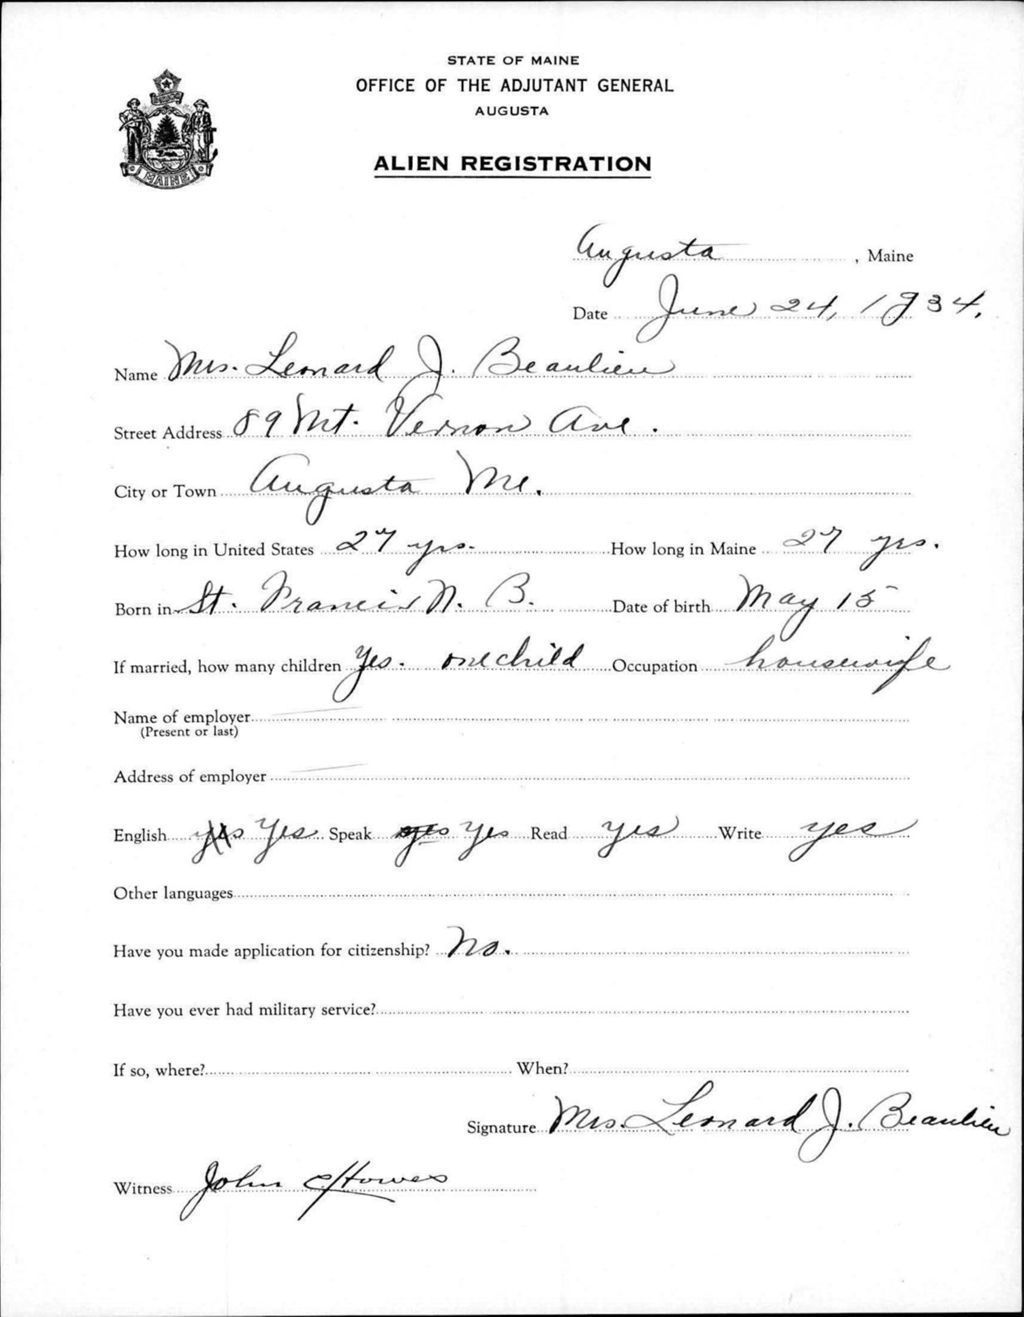 STATE OF MAINE
OFFICE OF THE ADJUTANT GENERAL
AUGUSTA
ALIEN REGISTRATION
MAINE
Augusta, Maine
Date June 24, 1934.
Name Mrs. Leonard J. Beaulieu
Street Address 89 Mt. Vernon Ave.
City or Town Augusta Me.
How long in United States 27 yrs. How long in Maine 27 yrs.
Born in St. Francis N. B. Date of birth May 15
If married, how many children Yes. one child Occupation housewife
Name of employer
(Present or last)
Address of employer
English yes Yes Speak yes Yes Read yes Write yes
Other languages
Have you made application for citizenship? No.
Have you ever had military service?
If so, where? When?
Signature Mrs. Leonard J. Beaulieu
Witness John C Howes